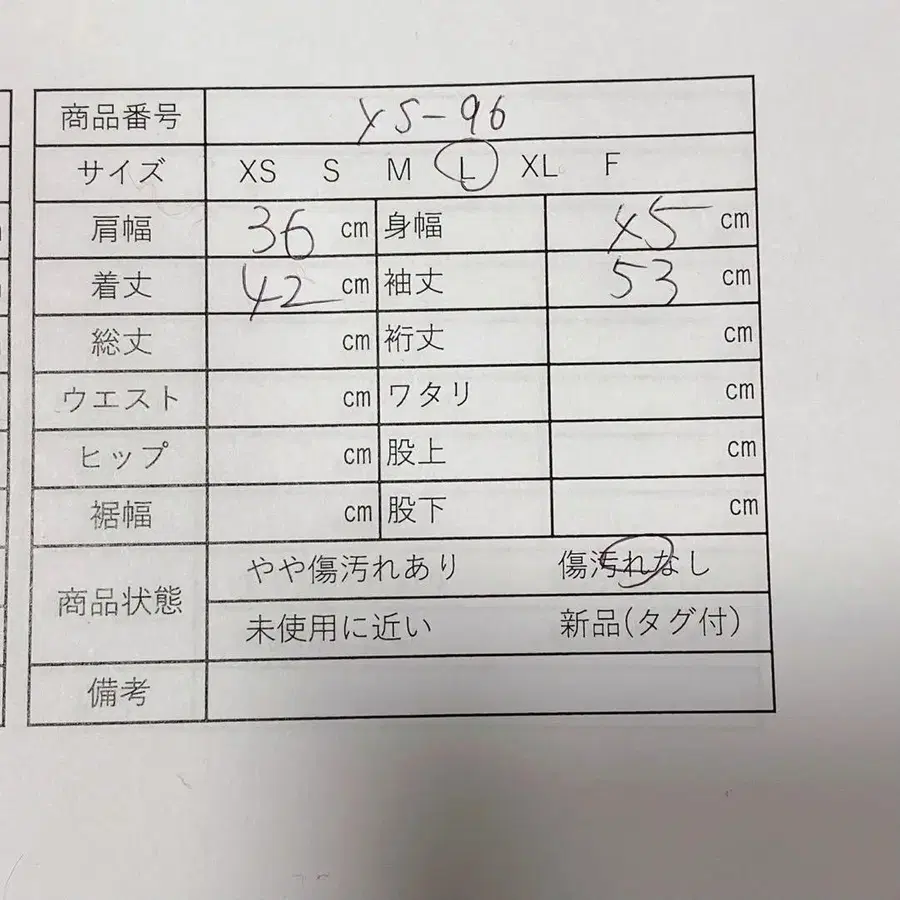 商品番号
サイズ XS S M L XL F
肩幅 36 cm 身幅 45 cm
着丈 42 cm 袖丈 53 cm
総丈 cm 裄丈 cm
ウエスト cm ワタリ cm
ヒップ cm 股上 cm
裾幅 cm 股下 cm
商品状態 やや傷汚れあり 傷汚れなし
未使用に近い 新品(タグ付)
備考